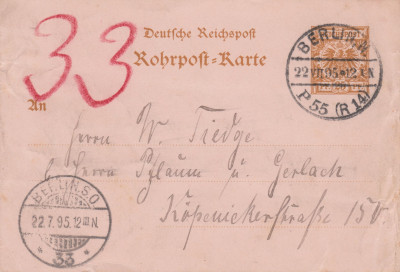 33
Deutsche Reichspost
Rohrpost-Karte
An
BERLIN.N.
22 VII 95 * 12.¼N
P 55 (R 14)
Herrn W. Tiedge
Herrn Pflaum u. Gerlach
Köpenickerstraße 150
BERLIN S.O.
22.7.95.12 N.
* 33 *